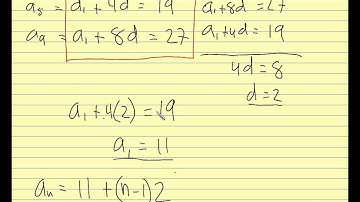 a₅ = a₁ + 4d = 19
a₉ = a₁ + 8d = 27
a₁ + 8d = 27
a₁ + 4d = 19
4d = 8
d = 2
a₁ + 4(2) = 19
a₁ = 11
aₙ = 11 + (n-1)2